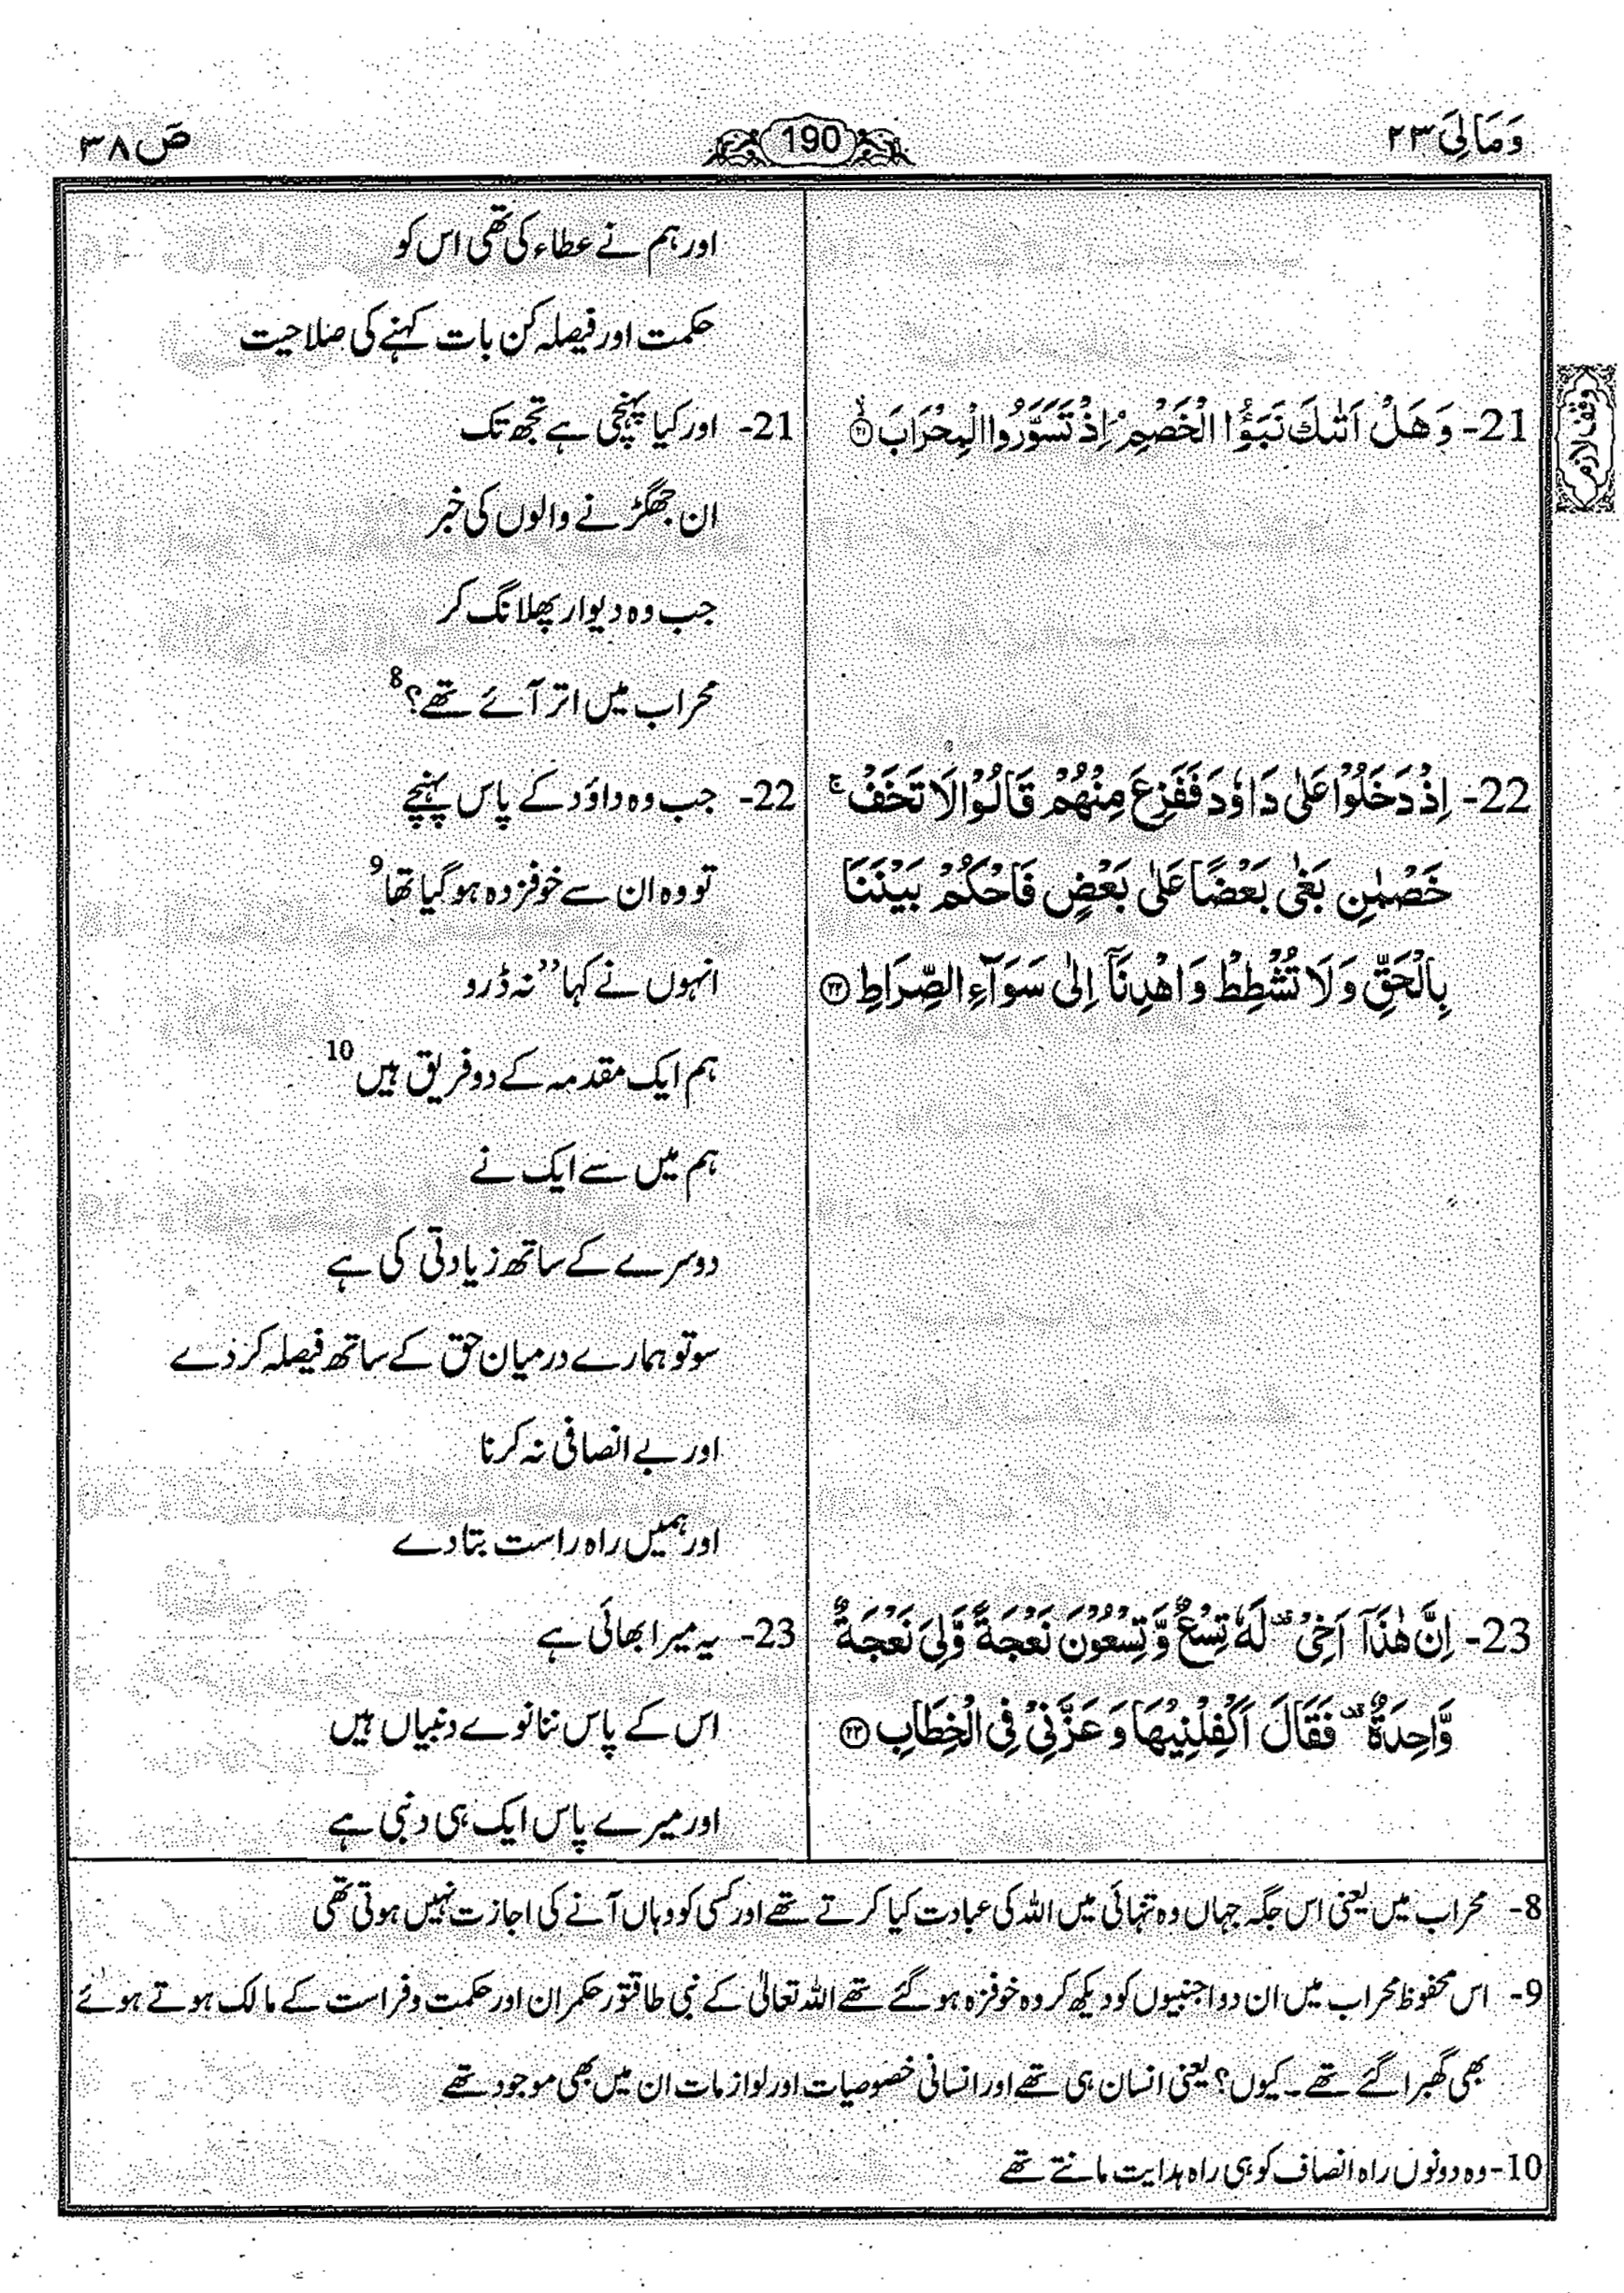 وَمَالِیَ ٢٣
190
صٓ ٣٨
وقف لازم
اور ہم نے عطاء کی تھی اس کو
حکمت اور فیصلہ کن بات کہنے کی صلاحیت
21- وَهَلْ اَتٰىكَ نَبَؤُا الْخَصْمِ ۘ اِذْ تَسَوَّرُوا الْمِحْرَابَ ۙ ٢١
21- اور کیا پہنچی ہے تجھ تک
ان جھگڑنے والوں کی خبر
جب وہ دیوار پھلانگ کر
محراب میں اتر آئے تھے؟ 8
22- اِذْ دَخَلُوْا عَلٰى دَاوٗدَ فَفَزِعَ مِنْهُمْ قَالُوْا لَا تَخَفْ ۚ
خَصْمٰنِ بَغٰى بَعْضُنَا عَلٰى بَعْضٍ فَاحْكُمْ بَيْنَنَا
بِالْحَقِّ وَلَا تُشْطِطْ وَاهْدِنَآ اِلٰى سَوَآءِ الصِّرَاطِ ٢٢
22- جب وہ داؤد کے پاس پہنچے
تو وہ ان سے خوفزدہ ہو گیا تھا 9
انہوں نے کہا ”نہ ڈرو
ہم ایک مقدمہ کے دو فریق ہیں 10
ہم میں سے ایک نے
دوسرے کے ساتھ زیادتی کی ہے
سو تو ہمارے درمیان حق کے ساتھ فیصلہ کر دے
اور بے انصافی نہ کرنا
اور ہمیں راہ راست بتا دے
23- اِنَّ هٰذَآ اَخِيْ ۣ لَهٗ تِسْعٌ وَّتِسْعُوْنَ نَعْجَةً وَّلِيَ نَعْجَةٌ
وَّاحِدَةٌ ۣ فَقَالَ اَكْفِلْنِيْهَا وَعَزَّنِيْ فِي الْخِطَابِ ٢٣
23- یہ میرا بھائی ہے
اس کے پاس ننانوے دنبیاں ہیں
اور میرے پاس ایک ہی دنبی ہے
8- محراب میں یعنی اس جگہ جہاں وہ تنہائی میں اللہ کی عبادت کیا کرتے تھے اور کسی کو وہاں آنے کی اجازت نہیں ہوتی تھی
9- اس محفوظ محراب میں ان دو اجنبیوں کو دیکھ کر وہ خوفزدہ ہو گئے تھے اللہ تعالیٰ کے نبی طاقتور حکمران اور حکمت و فراست کے مالک ہوتے ہوئے
بھی گھبرا گئے تھے۔ کیوں؟ یعنی انسان ہی تھے اور انسانی خصوصیات اور لوازمات ان میں بھی موجود تھے
10- وہ دونوں راہ انصاف کو ہی راہ ہدایت مانتے تھے